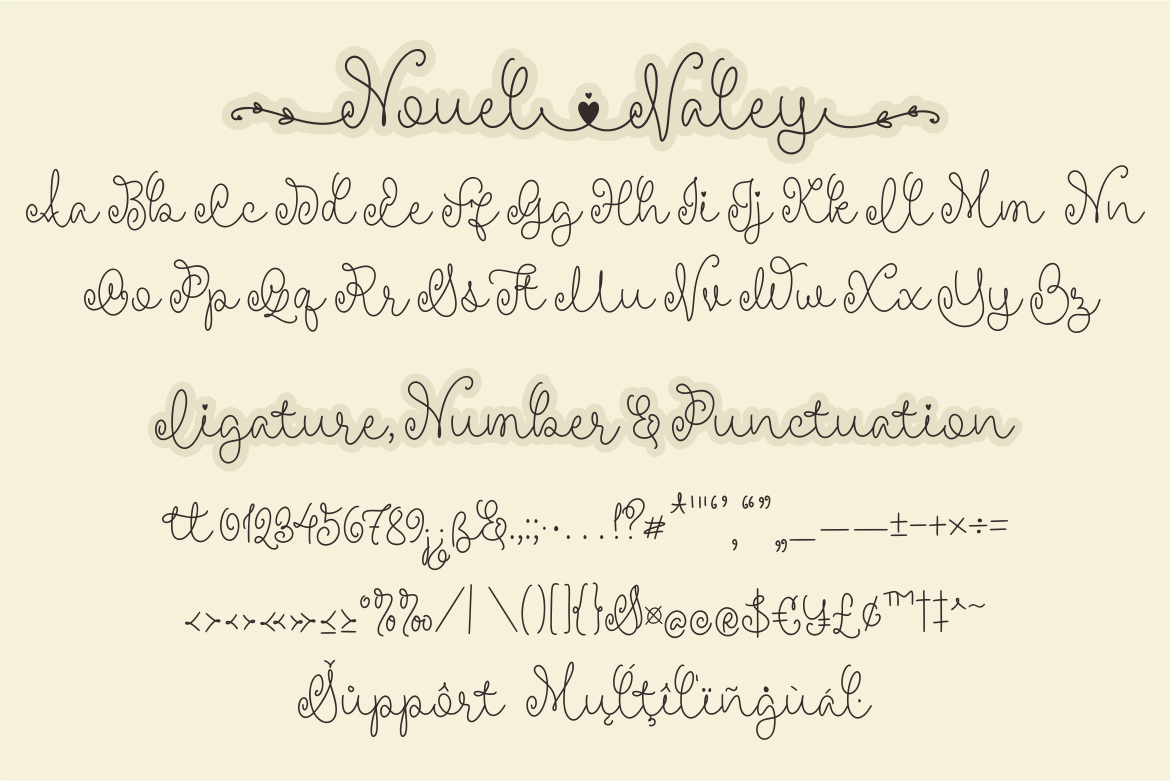 Nouel ♥ Valey
Aa Bb Cc Dd Ee Ff Gg Hh Ii Jj Kk Ll Mm Nn
Oo Pp Qq Rr Ss Tt Uu Vv Ww Xx Yy Zz
Ligature, Number & Punctuation
tt 0123456789¡¿ß&.,:;·...!?#*'"‘’“”‚„_—–±−+×÷=
<>‹›«»≤≥°%‰/|\()[]{}§¤@©®$€¥£¢™†‡^~
Šůppôrt Muļţîĺïñġùáŀ